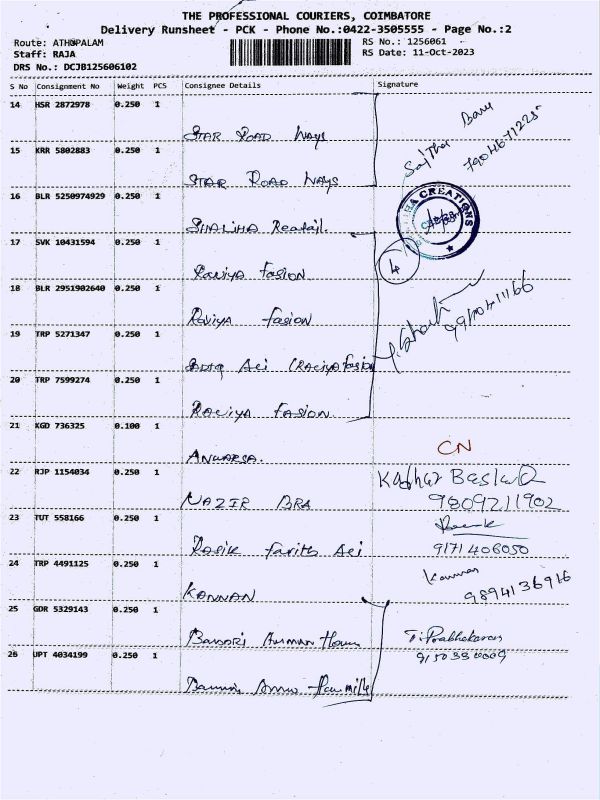 THE PROFESSIONAL COURIERS, COIMBATORE
Delivery Runsheet - PCK - Phone No.:0422-3505555 - Page No.:2
Route: ATHUPALAM
RS No.: 1256061
Staff: RAJA
RS Date: 11-Oct-2023
DRS No.: DCJB125606102
S No Consignment No Weight PCS Consignee Details Signature
14 HSR 2872978 0.250 1
STAR ROAD WAYS
15 KRR 5802883 0.250 1
STAR ROAD WAYS
16 BLR 5250974929 0.250 1
SHALIHA
CREATIONS
17 SVK 10431594 0.250 1
4
Raviya Fasion
18 BLR 2951902640 0.250 1
Raviya fasion
19 TRP 5271347 0.250 1
20 TRP 7599274 0.250 1
Raviya Fasion
21 KGD 736325 0.100 1
CN
ANWARSA.
22 RJP 1154034 0.250 1
NAZIR BRA
9809211902
23 TUT 558166 0.250 1
9171406050
24 TRP 4491125 0.250 1
Kannan
9894136916
KANNAN
25 GDR 5329143 0.250 1
T. Prabhakaran
26 UPT 4034199 0.250 1